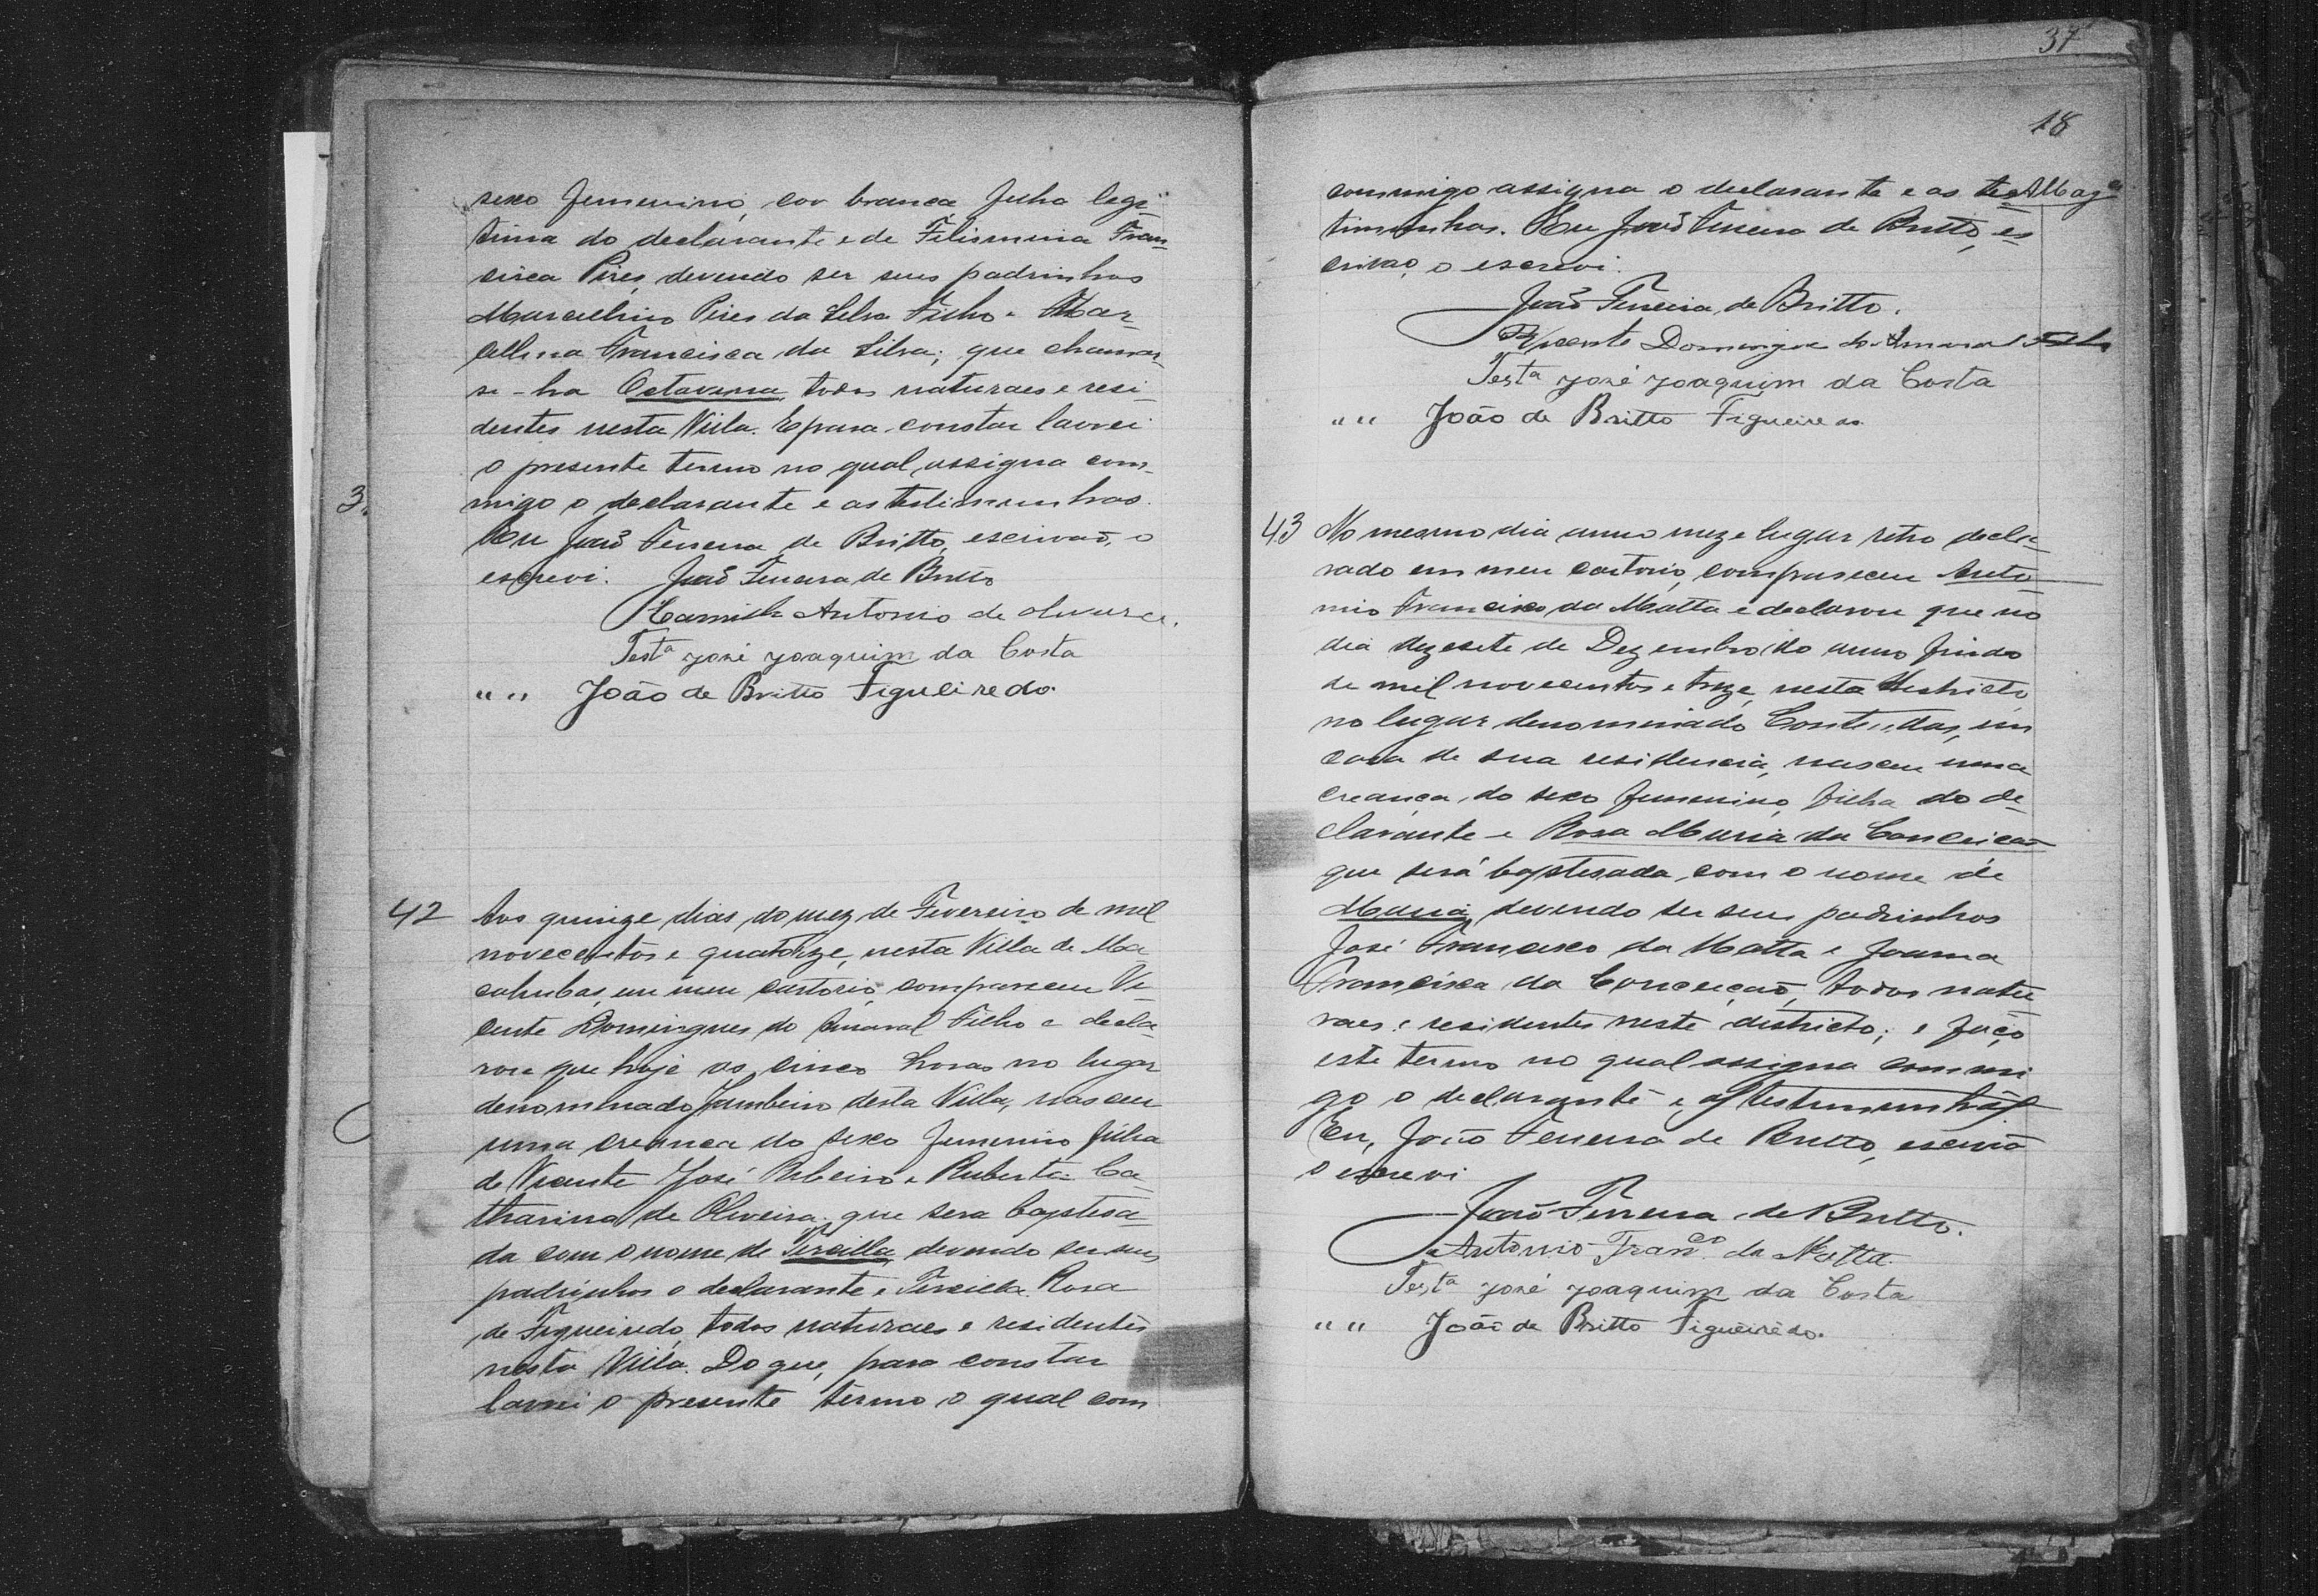 sexo femenino, cor branca filha legi-
tima do declarante e de Felismina Fran-
cisca Pires, devendo ser seus padrinhos
Marcelino Pires da Silva Filho e Mar-
cellina Francisca da Silva; que chamar-
se-ha Octaviana, todos naturaes e resi-
dentes nesta Villa. E para constar lavrei
o presente termo no qual assigna com-
migo o declarante e as testimunhas.
3.
Eu João Ferreira de Britto, escrivaõ, o
escrevi. João Ferreira de Britto
Antonio de Oliveira.
Testa José Joaquim da Costa
" " João de Britto Figueiredo.
42 Aos quinze dias do mez de Fevereiro de mil
novecentos e quatorze, nesta Villa de Ma-
cahubas, em meu cartorio, compareceu Vi-
cente Domingues do Amaral Filho e decla-
rou que hoje as cinco horas no lugar
denominado Jambeiro desta Villa, nasceu
uma creanca do sexo femenino filha
de Vicente José Ribeiro e Ruberta Ca-
tharina de Oliveira. que sera baptesa-
da com o nome de Tercilla, devendo ser seus
padrinhos o declarante e Tercilla Rosa
de Figueiredo, todos naturaes e residentes
nesta Villa. Do que, para constar
lavrei o presente termo o qual com
37
18
commigo assigna o declarante e as tes
timunhas. Eu João Ferreira de Britto, es
crivaõ, o escrevi.
João Ferreira de Britto.
Vicente Domingues do Amaral Filho
Testa José Joaquim da Costa
" " João de Britto Figueiredo.
43 No mesmo dia anno mez e lugar retro decla-
rado em meu cartorio, compareceu Anto-
nio Francisco da Matta e declarou que no
dia dezesete de Dezembro do anno findo
de mil novecentos e treze, nesta districto,
no lugar denominado Contendas, em
casa de sua residencia, nasceu uma
creança, do sexo femenino, filha do de-
clarante e Rosa Maria da Conceicaõ
que será baptesada com o nome de
Maria, devendo ser seus padrinhos
José Francisco da Matta e Joanna
Francisca da Conceiçaõ, todos natu
raes e residentes neste districto; e faço
este termo no qual assigna commi
go o declarante e as testimunhas
Eu, João Ferreira de Britto, escrivaõ
o escrevi
João Ferreira de Britto.
Antonio Franco da Matta.
Testa José Joaquim da Costa
" " João de Britto Figueirêdo.